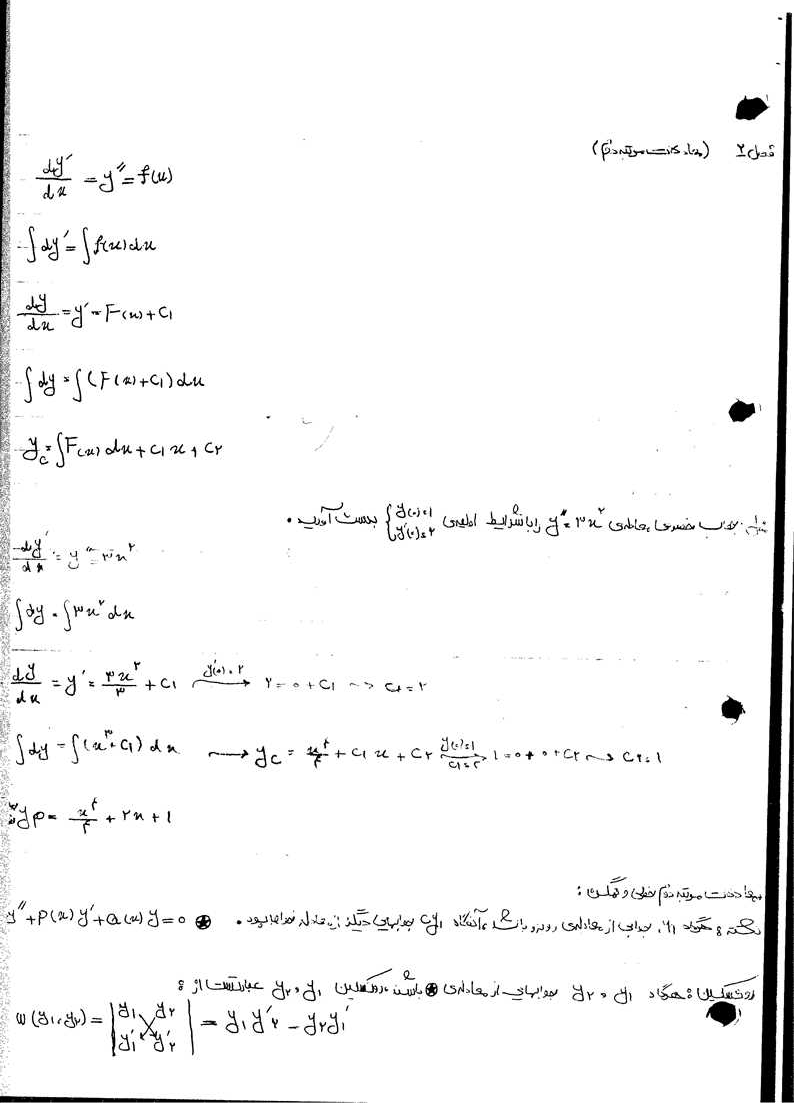 فصل ۲ (معادلات مرتبه دوم)
dy′/dx = y″ = f(x)
∫dy′ = ∫f(x)dx
dy/dx = y′ = F(x) + C1
∫dy = ∫(F(x) + C1)dx
yc = ∫F(x)dx + C1 x + C۲
مثال ۱: جواب خصوصی معادله‌ی y″ = ۳x^۲ را با شرایط اولیه‌ی { y(۰)=1 , y′(۰)=۲ بدست آورید.
dy′/dx = y″ = ۳x^۲
∫dy = ∫۳x^۲ dx
dy/dx = y′ = ۳x^۳/۳ + C1 —y′(۰)=۲→ ۲ = ۰ + C1 ~> C1 = ۲
∫dy = ∫(x^۳ + C1)dx → yc = x^۴/۴ + C1 x + C۲ —y(۰)=1, C1=۲→ 1 = ۰ + ۰ + C۲ ~> C۲ = 1
yp = x^۴/۴ + ۲x + 1
معادلات مرتبه دوم خطی و همگن:
نکته: هرگاه y1، جوابی از معادله‌ی روبرو باشد، آنگاه cy1 جوابهایی دیگر از معادله خواهد بود. ⊛ y″ + P(x)y′ + Q(x)y = ۰
رونسکین: هرگاه y1 و y۲ جوابهایی از معادله‌ی ⊛ باشند، رونسکین y1 و y۲ عبارتست از:
w(y1, y۲) = |y1 y۲ ; y′1 y′۲| = y1y′۲ − y۲y′1